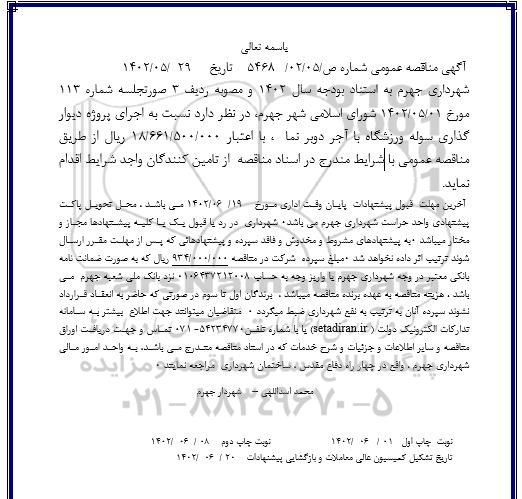 باسمه تعالی
آگهی مناقصه عمومی شماره ص/۰۲/۰۵/ ۵۴۶۸ تاریخ ۲۹ /۱۴۰۲/۰۵
شهرداری جهرم به استناد بودجه سال ۱۴۰۲ و مصوبه ردیف ۳ صورتجلسه شماره ۱۱۳
مورخ ۱۴۰۲/۰۵/۰۱ شورای اسلامی شهر جهرم، در نظر دارد نسبت به اجرای پروژه دیوار
گذاری سوله ورزشگاه با آجر دوبر نما ، با اعتبار ۱۸/۶۶۱/۵۰۰/۰۰۰ ریال از طریق
مناقصه عمومی با شرایط مندرج در اسناد مناقصه از تامین کنندگان واجد شرایط اقدام
نماید.
آخرین مهلت قبول پیشنهادات پایان وقت اداری مورخ ۱۹/ ۱۴۰۲/۰۶ می باشد . محل تحویل پاکت
پیشنهادی واحد حراست شهرداری جهرم می باشد۰ شهرداری در رد یا قبول یک یا کلیه پیشنهادها مجاز و
مختار میباشد ۰به پیشنهادهای مشروط و مخدوش و فاقد سپرده و پیشنهادهائی که پس از مهلت مقرر ارسال
شوند ترتیب اثر داده نخواهد شد ۰مبلغ سپرده شرکت در مناقصه ۹۳۴/۰۰۰/۰۰۰ ریال که به صورت ضمانت نامه
بانکی معتبر در وجه شهرداری جهرم یا واریز وجه به حساب ۰۱۰۶۴۳۷۲۱۲۰۰۸ نزد بانک ملی شعبه جهرم می
باشد . هزینه مناقصه به عهده برنده مناقصه میباشد . برندگان اول تا سوم در صورتی که حاضر به انعقاد قرارداد
نشوند سپرده آنان به ترتیب به نفع شهرداری ضبط میگردد ۰ متقاضیان میتوانند جهت اطلاع بیشتر به سامانه
تدارکات الکترونیک دولت ( setadiran.ir) یا با شماره تلفن۵۴۲۳۴۷۷۰-۰۷۱ تماس و جهت دریافت اوراق
مناقصه و سایر اطلاعات و جزئیات و شرح خدمات که در اسناد مناقصه مندرج می باشد، به واحد امور مالی
شهرداری جهرم ، واقع در چهار راه دفاع مقدس ، ساختمان شهرداری مراجعه نمایند ۰
محمد اسداللهی – شهردار جهرم
۰۲۱-۸۸۳۴۹۶۷۰-۵
نوبت چاپ اول ۰۱ / ۰۶ /۱۴۰۲ نوبت چاپ دوم ۰۸ / ۰۶ /۱۴۰۲
تاریخ تشکیل کمیسیون عالی معاملات و بازگشایی پیشنهادات ۲۰ / ۰۶ /۱۴۰۲